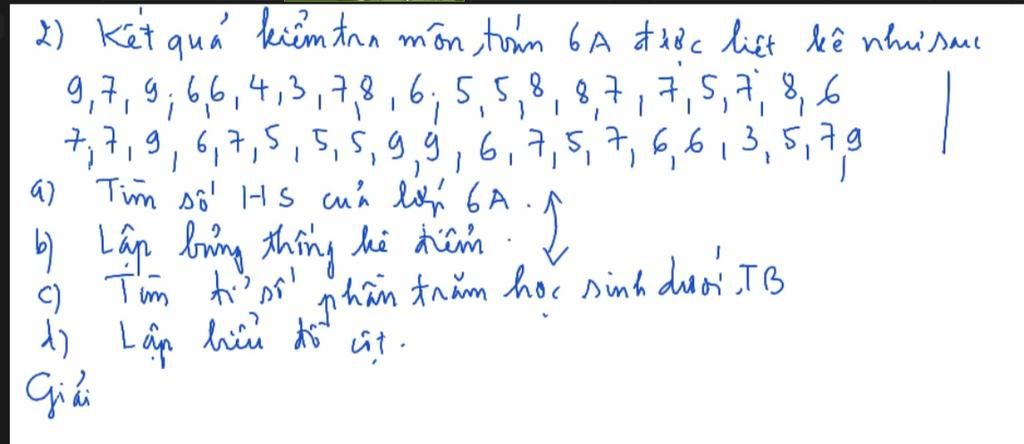 2) Kết quả kiểm tra môn toán 6A được liệt kê như sau
9, 7, 9, 6, 6, 4, 3, 7, 8, 6, 5, 5, 8, 8, 7, 7, 5, 7, 8, 6
7, 7, 9, 6, 7, 5, 5, 5, 9, 9, 6, 7, 5, 7, 6, 6, 3, 5, 7, 9
a) Tìm số HS của lớp 6A.
b) Lập bảng thống kê điểm.
c) Tìm tỉ số phần trăm học sinh dưới TB
d) Lập biểu đồ cột.
Giải